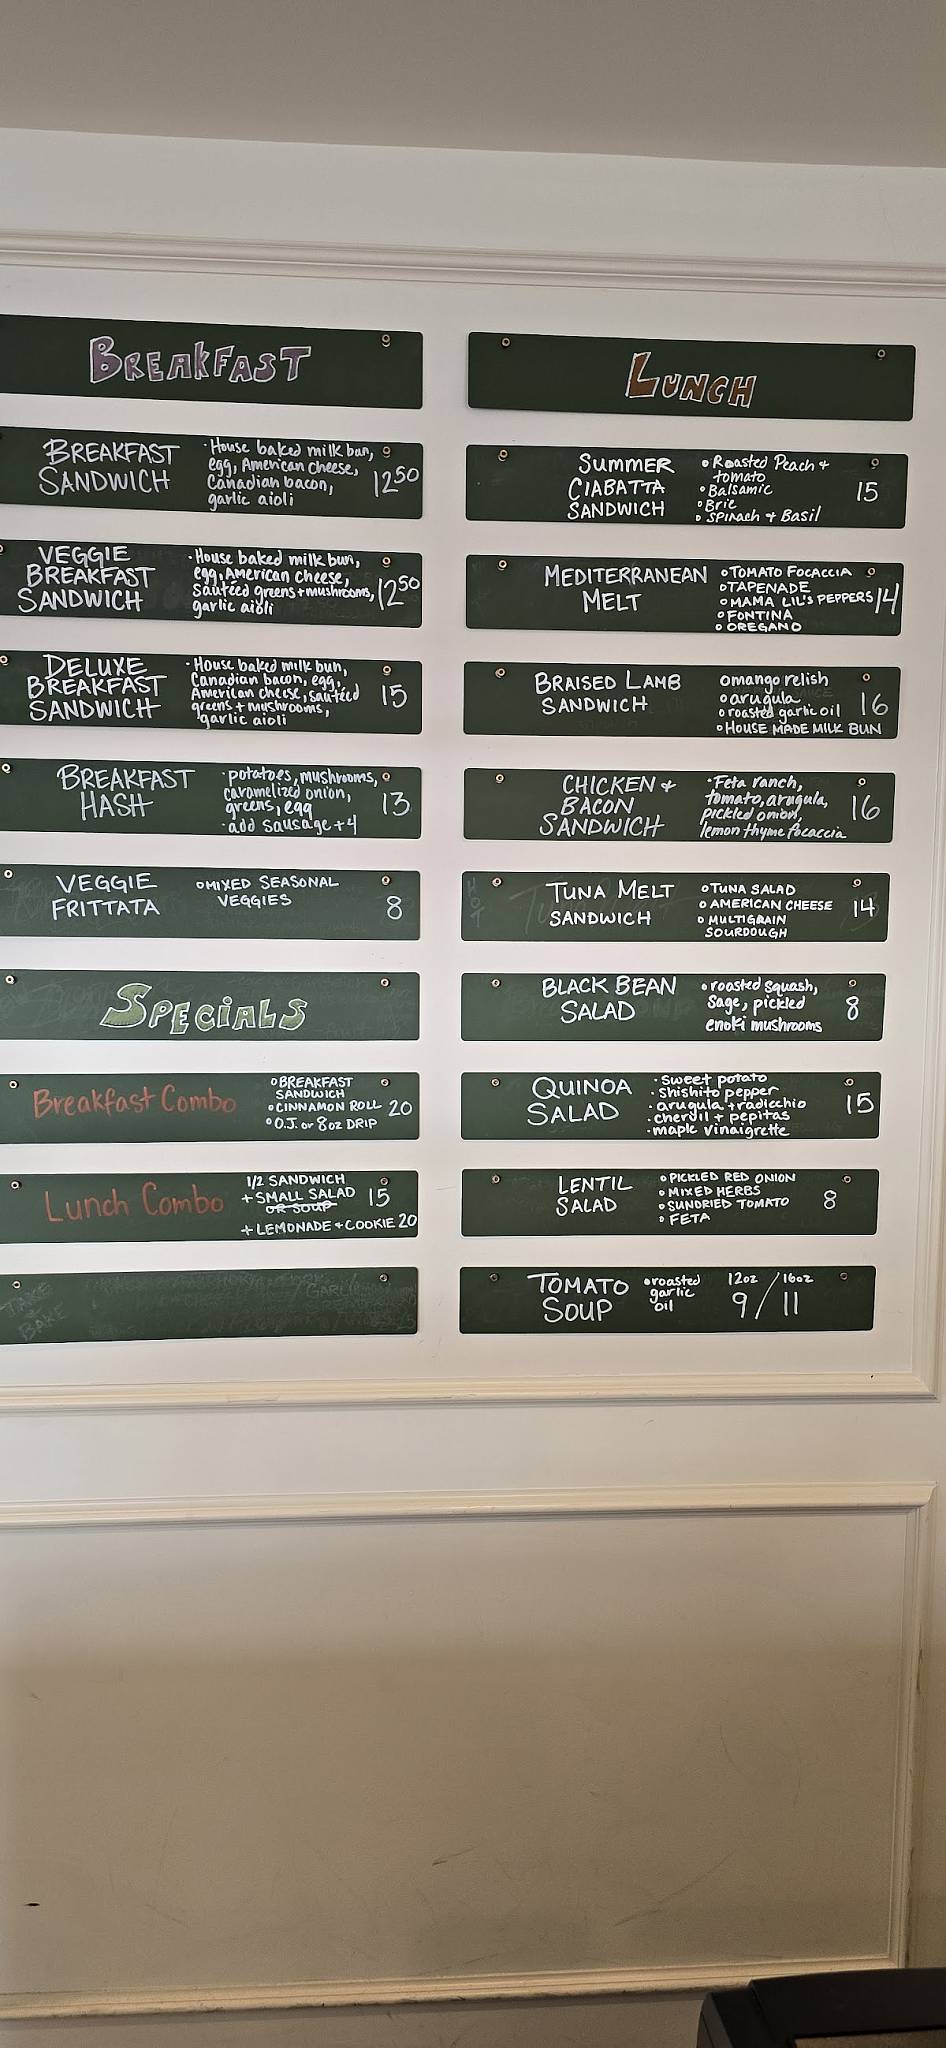 BREAKFAST
BREAKFAST
SANDWICH
· House baked milk bun,
egg, American cheese,
Canadian bacon,
garlic aioli
1250
VEGGIE
BREAKFAST
SANDWICH
· House baked milk bun,
egg, American cheese,
Sautéed greens + mushrooms,
garlic aioli
1250
DELUXE
BREAKFAST
SANDWICH
· House baked milk bun,
Canadian bacon, egg,
American cheese, sautéed
greens + mushrooms,
garlic aioli
15
BREAKFAST
HASH
· potatoes, mushrooms,
caramelized onion,
greens, egg
· add sausage +4
13
VEGGIE
FRITTATA
o MIXED SEASONAL
VEGGIES
8
SPECIALS
Breakfast Combo
o BREAKFAST
SANDWICH
o CINNAMON ROLL
o O.J. or 8oz DRIP
20
Lunch Combo
1/2 SANDWICH
+ SMALL SALAD
OR SOUP
15
+ LEMONADE + COOKIE 20
TAKE
&
BAKE
LUNCH
SUMMER
CIABATTA
SANDWICH
o Roasted Peach +
tomato
o Balsamic
o Brie
o SPINACH + BASIL
15
MEDITERRANEAN
MELT
o TOMATO FOCACCIA
o TAPENADE
o MAMA LIL'S PEPPERS
o FONTINA
o OREGANO
14
BRAISED LAMB
SANDWICH
o mango relish
o arugula
o roasted garlic oil
o HOUSE MADE MILK BUN
16
CHICKEN +
BACON
SANDWICH
· Feta ranch,
tomato, arugula,
pickled onion,
lemon thyme focaccia
16
TUNA MELT
SANDWICH
o TUNA SALAD
o AMERICAN CHEESE
o MULTIGRAIN
SOURDOUGH
14
BLACK BEAN
SALAD
o roasted squash,
sage, pickled
enoki mushrooms
8
QUINOA
SALAD
· sweet potato
· shishito pepper
· arugula + radicchio
· chervil + pepitas
· maple vinaigrette
15
LENTIL
SALAD
o PICKLED RED ONION
o MIXED HERBS
o SUNDRIED TOMATO
o FETA
8
TOMATO
SOUP
o roasted
garlic
oil
12oz / 16oz
9 / 11